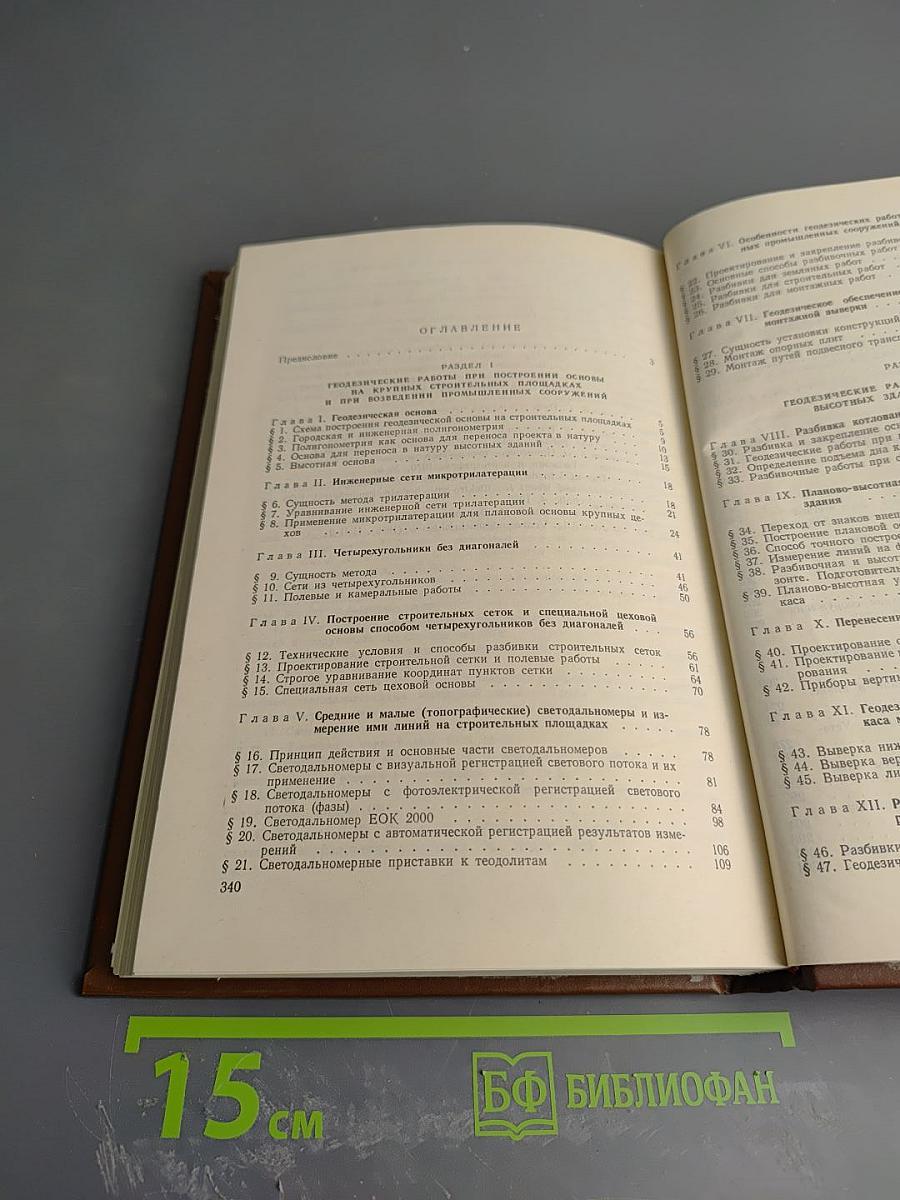 ОГЛАВЛЕНИЕ
Предисловие . . . 3
РАЗДЕЛ I
ГЕОДЕЗИЧЕСКИЕ РАБОТЫ ПРИ ПОСТРОЕНИИ ОСНОВЫ
НА КРУПНЫХ СТРОИТЕЛЬНЫХ ПЛОЩАДКАХ
И ПРИ ВОЗВЕДЕНИИ ПРОМЫШЛЕННЫХ СООРУЖЕНИЙ
Глава I. Геодезическая основа . . . 5
§ 1. Схема построения геодезической основы на строительных площадках 5
§ 2. Городская и инженерная полигонометрия . . . 9
§ 3. Полигонометрия как основа для переноса проекта в натуру 10
§ 4. Основа для переноса в натуру высотных зданий . . . 13
§ 5. Высотная основа . . . 15
Глава II. Инженерные сети микротрилатерации . . . 18
§ 6. Сущность метода трилатерации . . . 18
§ 7. Уравнивание инженерной сети трилатерации . . . 21
§ 8. Применение микротрилатерации для плановой основы крупных це-
хов . . . 24
Глава III. Четырехугольники без диагоналей . . . 41
§ 9. Сущность метода . . . 41
§ 10. Сети из четырехугольников . . . 46
§ 11. Полевые и камеральные работы . . . 50
Глава IV. Построение строительных сеток и специальной цеховой
основы способом четырехугольников без диагоналей . . . 56
§ 12. Технические условия и способы разбивки строительных сеток 56
§ 13. Проектирование строительной сетки и полевые работы . . . 61
§ 14. Строгое уравнивание координат пунктов сетки . . . 64
§ 15. Специальная сеть цеховой основы . . . 70
Глава V. Средние и малые (топографические) светодальномеры и из-
мерение ими линий на строительных площадках . . . 78
§ 16. Принцип действия и основные части светодальномеров . . . 78
§ 17. Светодальномеры с визуальной регистрацией светового потока и их
применение . . . 81
§ 18. Светодальномеры с фотоэлектрической регистрацией светового
потока (фазы) . . . 84
§ 19. Светодальномер ЕОК 2000 . . . 98
§ 20. Светодальномеры с автоматической регистрацией результатов изме-
рений . . . 106
§ 21. Светодальномерные приставки к теодолитам . . . 109
340
Глава VI. Особенности геодезических работ
ных промышленных сооружений
§ 22. Проектирование и закрепление разбиво
§ 23. Основные способы разбивочных работ
§ 24. Разбивки для земляных работ
§ 25. Разбивки для строительных работ
§ 26. Разбивки для монтажных работ
Глава VII. Геодезическое обеспечение
монтажной выверки
§ 27. Сущность установки конструкций
§ 28. Монтаж опорных плит
§ 29. Монтаж путей подвесного трансп
РА
ГЕОДЕЗИЧЕСКИЕ РА
ВЫСОТНЫХ ЗДА
Глава VIII. Разбивка котлована
§ 30. Разбивка и закрепление ос
§ 31. Геодезические работы при
§ 32. Определение подъема дна к
§ 33. Разбивочные работы при с
Глава IX. Планово-высотная
здания
§ 34. Переход от знаков внеш
§ 35. Построение плановой о
§ 36. Способ точного построе
§ 37. Измерение линий на ф
§ 38. Разбивочная и высот
зонте. Подготовитель
§ 39. Планово-высотная у
каса
Глава X. Перенесени
§ 40. Проектирование с
§ 41. Проектирование
рования
§ 42. Приборы верти
Глава XI. Геодез
каса м
§ 43. Выверка ниж
§ 44. Выверка вер
§ 45. Выверка ли
Глава XII. Р
§ 46. Разбивки
§ 47. Геодезич
15 см
БФ БИБЛИОФАН